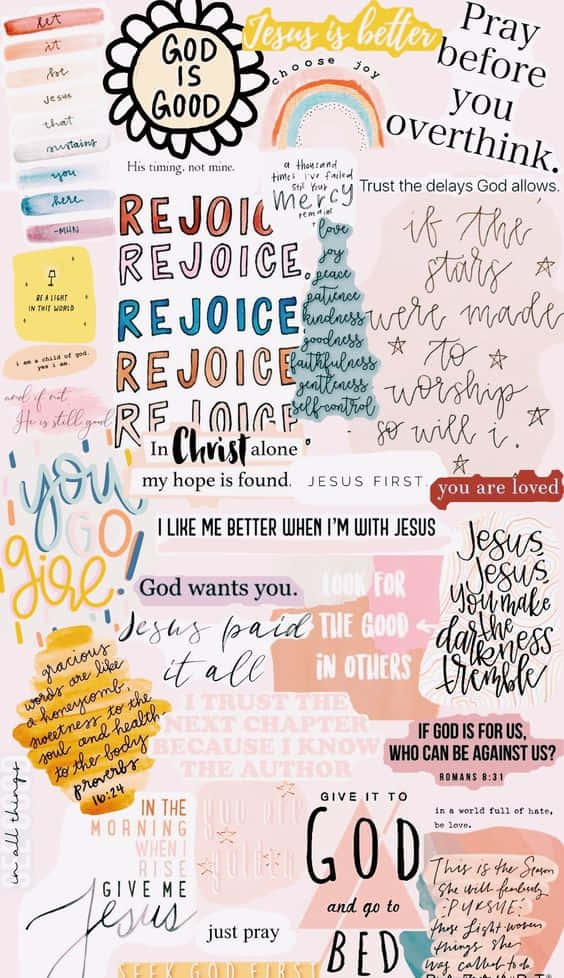 let
it
be
Jesus
that
sustains
you
here
-MHN
GOD
IS
GOOD
Jesus is better
choose joy
Pray
before
you
overthink.
His timing, not mine.
a thousand
times i've failed
still your
mercy
remains
Trust the delays God allows.
REJOIC
REJOICE.
REJOICE
REJOICE
REJOICE
love
joy
peace
patience
kindness
goodness
faithfulness
gentleness
self-control
if the
stars
were made
to
worship
so will i.
BE A LIGHT
IN THIS WORLD
i am a child of god.
yes i am.
and if not,
He is still good
In Christ alone
my hope is found.
JESUS FIRST.
you are loved
you
GO
girl
I LIKE ME BETTER WHEN I'M WITH JESUS
God wants you.
LOOK FOR
THE GOOD
IN OTHERS
Jesus paid
it all
Jesus,
Jesus,
you make
the
darkness
tremble
gracious
words are like
a honeycomb,
sweetness to the
soul and health
to the body
proverbs
16:24
I TRUST THE
NEXT CHAPTER
BECAUSE I KNOW
THE AUTHOR
IF GOD IS FOR US,
WHO CAN BE AGAINST US?
ROMANS 8:31
in all things
IN THE
MORNING
WHEN I
RISE
GIVE ME
Jesus
you are
golden
just pray
SEEK GOD FIRST
GIVE IT TO
GOD
and go to
BED
in a world full of hate,
be love.
This is the Season
She will fearlessly
·PURSUE·
those light woven
things she
was called to do.